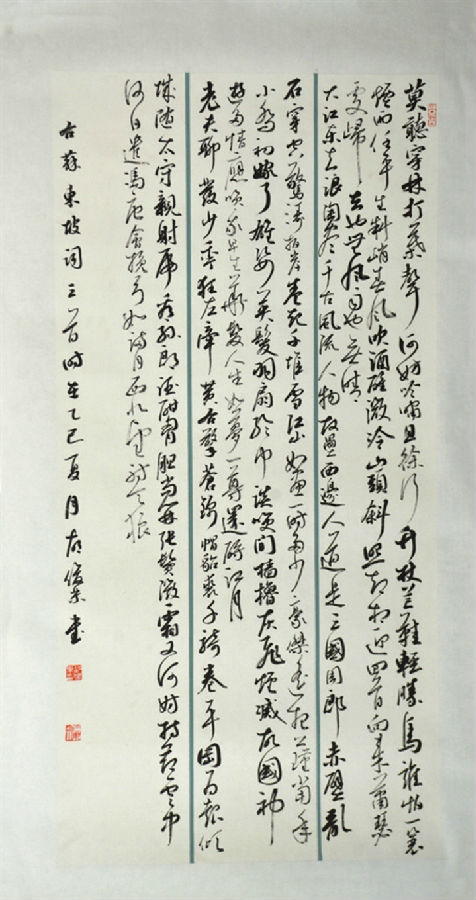 莫聽穿林打葉聲何妨吟嘯且徐行竹杖芒鞋輕勝馬誰怕一蓑
煙雨任平生料峭春風吹酒醒微冷山頭斜照却相迎回首向來蕭瑟
處歸去也無風雨也無晴
大江東去浪淘盡千古風流人物故壘西邊人道是三國周郎赤壁亂
石穿空驚濤拍岸卷起千堆雪江山如畫一時多少豪傑遙想公瑾當年
小喬初嫁了雄姿英發羽扇綸巾談笑間檣櫓灰飛煙滅故國神
遊多情應笑我早生華髮人生如夢一尊還酹江月
老夫聊發少年狂左牽黃右擎蒼錦帽貂裘千騎卷平岡為報傾
城隨太守親射虎看孫郎酒酣胸膽尚開張鬢微霜又何妨持節雲中
何日遣馮唐會挽弓如滿月西北望射天狼
蘇東坡詞三首時在乙巳夏月書